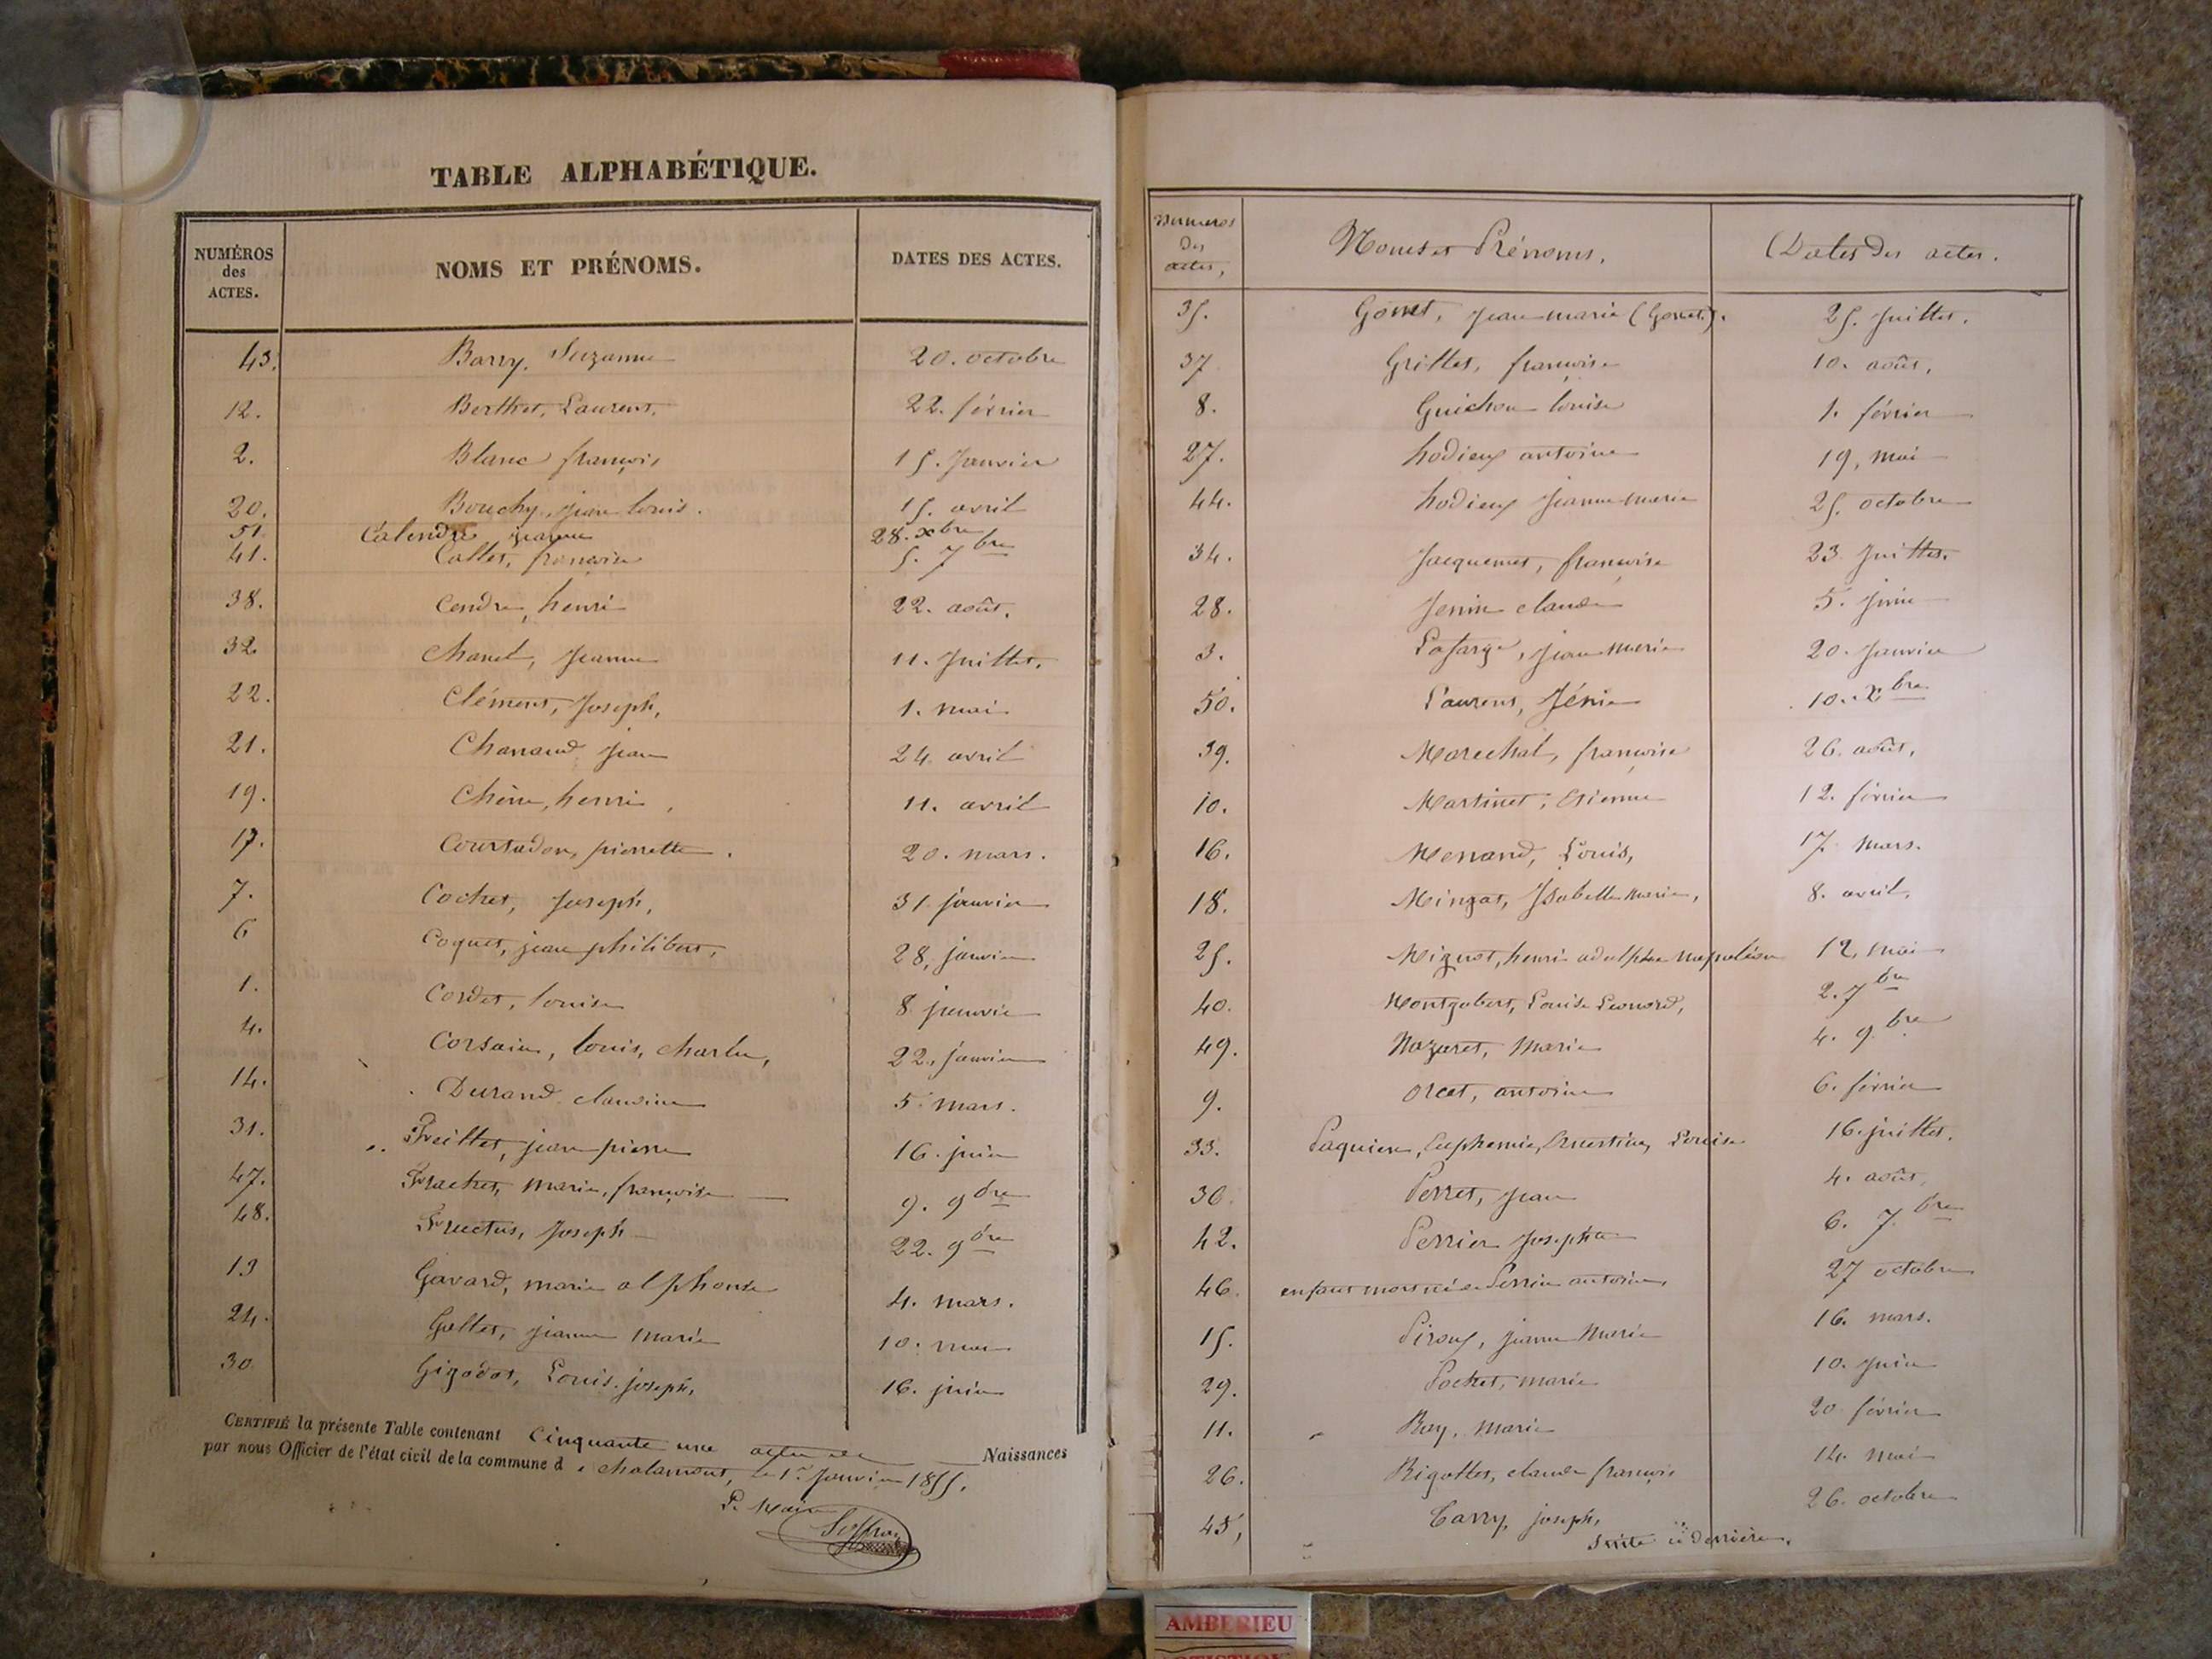 TABLE ALPHABÉTIQUE.
NUMÉROS des ACTES. NOMS ET PRÉNOMS. DATES DES ACTES.
43. Barry, Suzanne 20. octobre
12. Berthet, Laurent. 22. février
2. Blanc françois 15. Janvier
20. Bouchy, jean louis. 15. avril
51 Calendre jeanne 28. xbre
41. Collet, françoise 5. 7bre
38. Cendre, henri 22. août.
32 Chanel, Jeanne 11. Juillet.
22. Clément, Joseph, 1. mai
21. Chanaud jean 24 avril
19. Chêne, henri, 11. avril
17. Courtadon, pierrette. 20. mars.
7. Cochet, Joseph, 31 janvier
6 Coquet, jean philibert, 28, janvier
1. Cordet, louise 8 janvier
4. Corsain, louis, charles, 22, janvier
14. Durand claudine 5 mars.
31. Freillet, jean pierre 16. juin
47. Frachet, marie, françoise 9. 9bre
48. Fructus, Joseph 22. 9bre
13 Gavard, marie alphonse 4. mars.
24. Gollet, jeanne marie 10. mai
30 Gigodot, Louis. joseph, 16. juin
CERTIFIÉ la présente Table contenant Cinquante une actes de Naissances
par nous Officier de l'état civil de la commune d e chalamont, le 1er Janvier 1855.
Le Maire
Numeros des actes, Noms et Prénoms. Dates des actes.
35. Gonet, Jean marie (Gonet). 25. Juillet.
37 Grillet, françoise 10. août,
8. Guichon louise 1. février
27. hodieux antoine 19, mai
44. hodieux Jeanne marie 25. octobre
34. Jacquemet, françoise 23 Juillet.
28. Jenin claude 5. juin
3. Lafarge, jean marie 20. Janvier
50. Laurent, Jénie 10. Xbre
39. Marechal, françoise 26. août,
10. Martinet, Etienne 12. février
16. Menand, Louis, 17 mars.
18. Mingat, Isabelle marie, 8. avril,
25. Mignot, henri adolphe napoléon 12, mai
40. Montgobert, Louise Leonard, 2. 7bre
49. Nazaret, Marie 4. 9bre
9. Orcet, antoine 6. février
33. Paquien, Euphemie, Ernestine, Louise 16. juillet.
36. Perret, Jean 4. août,
42. Perrier Josephte 6. 7bre
46. enfant mort né de Perrin antoine, 27 octobre
15. Piroux, jeanne Marie 16. mars.
29. Pochet, marie 10. Juin
11. Ray, Marie 20 février
26. Rigollet, claude françois 14. mai
45, Tarry, joseph, 26. octobre
Suite ci derrière.
AMBERIEU